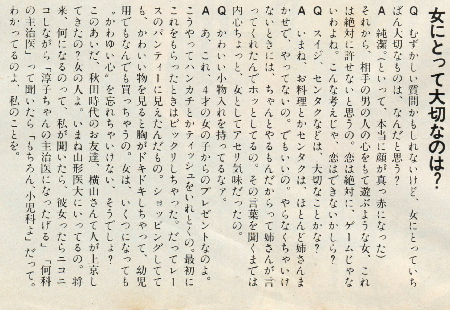 女にとって大切なのは？
Q　むずかしい質問かもしれないけど、女にとっていち
ばん大切なものは、なんだと思う？
A　純潔（といって、本当に顔が真っ赤になった）
それから、相手の男の人の心をもて遊ぶような女、これ
は絶対に許せないと思うの。恋は絶対に、ゲームじゃな
いわよね。こんな考えじゃ、恋はできないかしら？
Q　スイジ、センタクなどは、大切なことかな？
A　いまね、お料理とかセンタクは、ほとんど姉さんま
かせで、やってないの。でもいいの、やらなくちゃいけ
ないときには、ちゃんとやるもんだからって姉さんが言
ってくれたんでホッとしてるの。その言葉を聞くまでは
内心ちょっと、女としてアセリ気味だったの。
Q　かわいい小物入れを持ってるなァ。
A　あ、これ、4才の女の子からのプレゼントなのよ。
こうやってハンカチとかティッシュをいれとくの。最初に
これをもらったときはビックリしちゃった。だってレー
スのパンティーに見えたんだもの。ショッピングしてて
も、かわいい物を見ると胸がドキドキしちゃって、幼児
用でもなんでも買っちゃうの。女は、いくつになっても
“かわゆい心”を忘れちゃいけない、そうでしょ？
このあいだ、秋田時代のお友達、横山さんて人が上京し
てきたの？女の人よ。いまね山形医大にいってるの。将
来、何になるのって、私が聞いたら、彼女ったらニコニ
コしながら「淳子ちゃんの主治医になったげる」「何科
の主治医」って聞いたら「もちろん、小児科よ」だって。
わかってるのよ、私のことを。